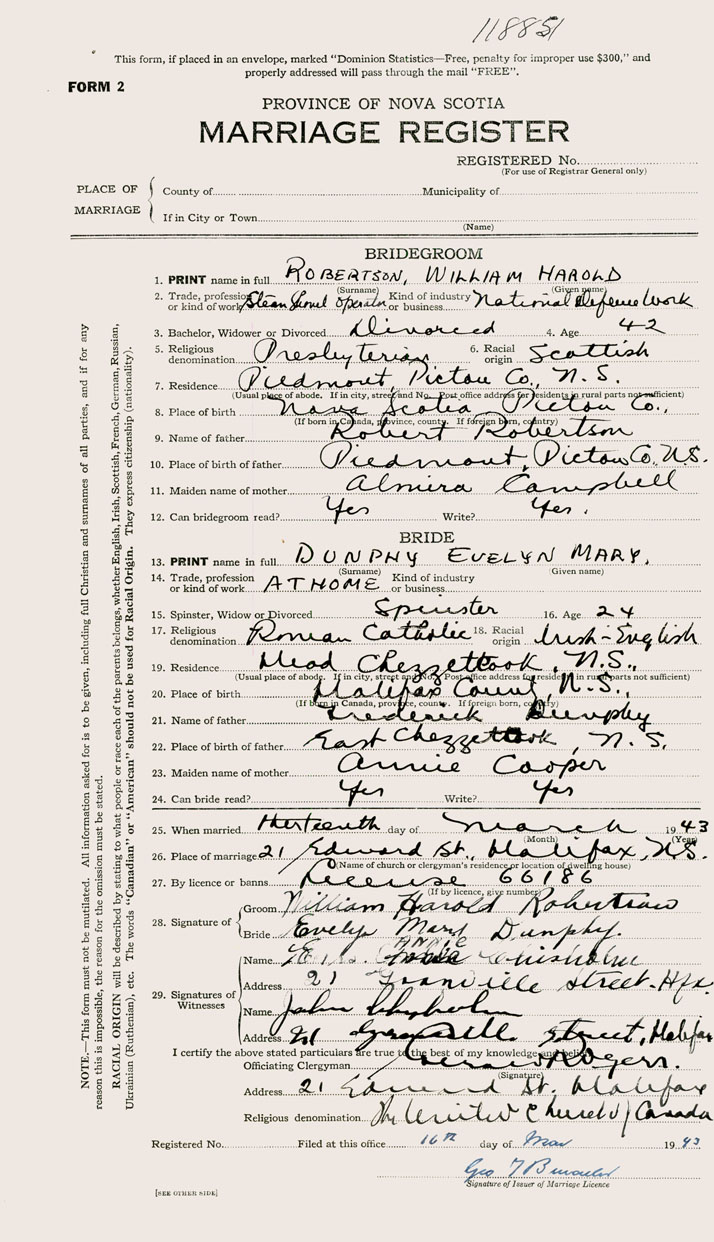 118851
This form, if placed in an envelope, marked "Dominion Statistics—Free, penalty for improper use $300," and
properly addressed will pass through the mail "FREE".
FORM 2
PROVINCE OF NOVA SCOTIA
MARRIAGE REGISTER
REGISTERED No.
(For use of Registrar General only)
PLACE OF MARRIAGE
County of Municipality of
If in City or Town
(Name)
BRIDEGROOM
1. PRINT name in full ROBERTSON, WILLIAM HAROLD
(Surname) (Given name)
2. Trade, profession or kind of work Steam Shovel Operator Kind of industry or business National Defence Work
3. Bachelor, Widower or Divorced Divorced 4. Age 42
5. Religious denomination Presbyterian 6. Racial origin Scottish
7. Residence Piedmont, Pictou Co., N.S.
(Usual place of abode. If in city, street and No. Post office address for residents in rural parts not sufficient)
8. Place of birth Nova Scotia Pictou Co.,
(If born in Canada, province, county. If foreign born, country)
9. Name of father Robert Robertson
10. Place of birth of father Piedmont, Pictou Co., N.S.
11. Maiden name of mother Almira Campbell
12. Can bridegroom read? Yes Write? Yes.
BRIDE
13. PRINT name in full DUNPHY EVELYN MARY.
(Surname) Given name)
14. Trade, profession or kind of work AT HOME Kind of industry or business
15. Spinster, Widow or Divorced Spinster 16. Age 24
17. Religious denomination Roman Catholic 18. Racial origin Irish-English
19. Residence Head Chezzettcook, N.S.,
(Usual place of abode. If in city, street and No. Post office address for residents in rural parts not sufficient)
20. Place of birth Halifax County, N.S.,
(If born in Canada, province, county. If foreign born, country)
21. Name of father Frederick Dunphy
22. Place of birth of father East Chezzettcook, N.S.
23. Maiden name of mother Annie Cooper
24. Can bride read? Yes Write? Yes
25. When married thirteenth day of March 1943
(Month) (Year)
26. Place of marriage 21 Edward St., Halifax, N.S.
(Name of church or clergyman's residence or location of dwelling house)
27. By licence or banns License 66186
(If by licence, give number)
28. Signature of
Groom William Harold Robertson
Bride Evelyn Mary Dunphy.
29. Signatures of Witnesses
ANNIE
Name Chisholm
Address 21 Granville Street. Hfx.
Name John Chisholm
Address 21 Granville Street, Halifax
I certify the above stated particulars are true to the best of my knowledge and belief.
Officiating Clergyman Rogers.
(Signature)
Address 21 Edward St. Halifax
Religious denomination The United Church of Canada
Registered No. Filed at this office 16th day of Mar 1943
Geo
Signature of Issuer of Marriage Licence
[SEE OTHER SIDE]
NOTE.—This form must not be mutilated. All information asked for is to be given, including full Christian and surnames of all parties, and if for any
reason this is impossible, the reason for the omission must be stated.
RACIAL ORIGIN will be described by stating to what people or race each of the parents belongs, whether English, Irish, Scottish, French, German, Russian,
Ukrainian (Ruthenian), etc. The words "Canadian" or "American" should not be used for Racial Origin. They express citizenship (nationality).